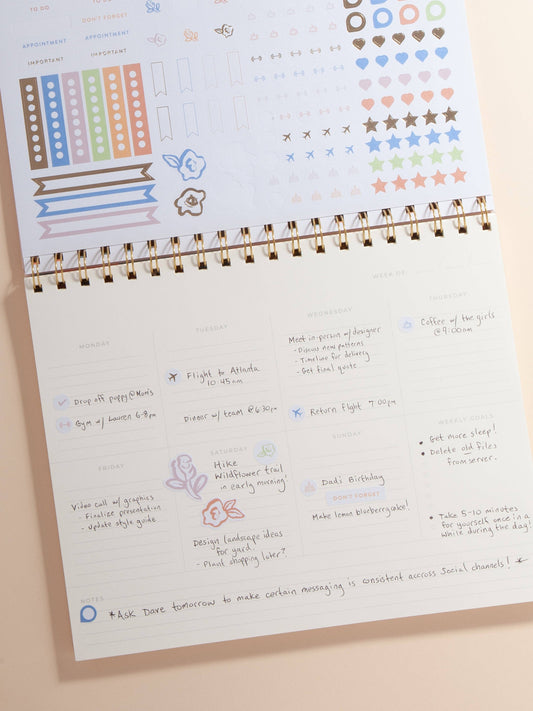 TO DO
TO DO
DON'T FORGET
APPOINTMENT
APPOINTMENT
IMPORTANT
IMPORTANT
WEEK OF
MONDAY
Drop off puppy @ Mom's
Gym w/ Lauren 6-8pm
TUESDAY
Flight to Atlanta
10:45am
Dinner w/ team @ 6:30pm
WEDNESDAY
Meet in-person w/ designer
- Discuss new patterns
- Timeline for delivery
- Get final quote
Return flight 7:00pm
THURSDAY
Coffee w/ the girls
@ 9:00am
FRIDAY
Video call w/ graphics
- Finalize presentation
- Update style guide
SATURDAY
Hike
Wildflower trail
in early morning!
Design landscape ideas
for yard!
- Plant shopping later?
SUNDAY
Dad's Birthday
DON'T FORGET
Make lemon blueberry cake!
WEEKLY GOALS
• Get more sleep!
• Delete old files
from server.
• Take 5-10 minutes
for yourself once in a
while during the day!
NOTES
*Ask Dave tomorrow to make certain messaging is consistent accross Social channels! *